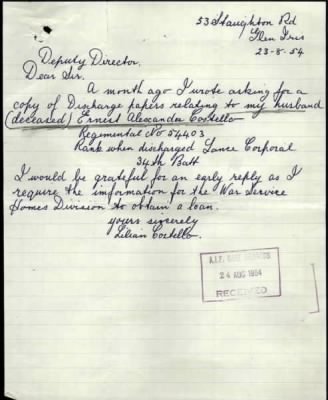 53 Staughton Rd
Glen Iris
23-8-54
Deputy Director,
Dear Sir.
A month ago I wrote asking for a
copy of Discharge papers relating to my husband
(deceased) Ernest Alexander Costello
Regimental No 54403
Rank when discharged Lance Corporal
34th Batt
I would be grateful for an early reply as I
require the information for the War Service
Homes Division to obtain a loan.
yours sincerely
Lilian Costello.
A.I.F. BASE RECORDS
24 AUG 1954
RECEIVED